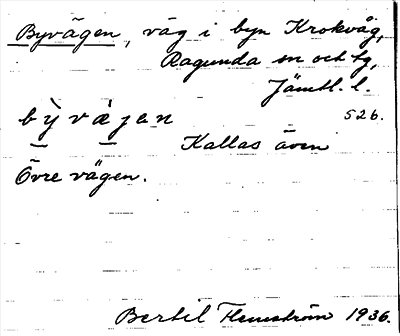 Byvägen, väg i byn Krokvåg,
Ragunda sn och tg,
Jämtl. l.
bỳvæ̀jen 526.
Kallas även
Övre vägen.
Bertil Flemström 1936.